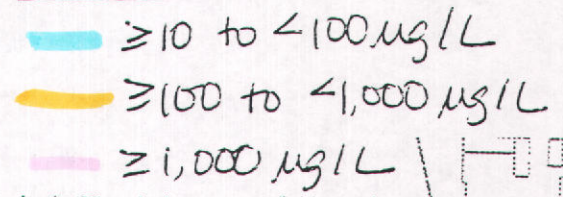 ≥10 to <100 µg/L
≥100 to <1,000 µg/L
≥1,000 µg/L